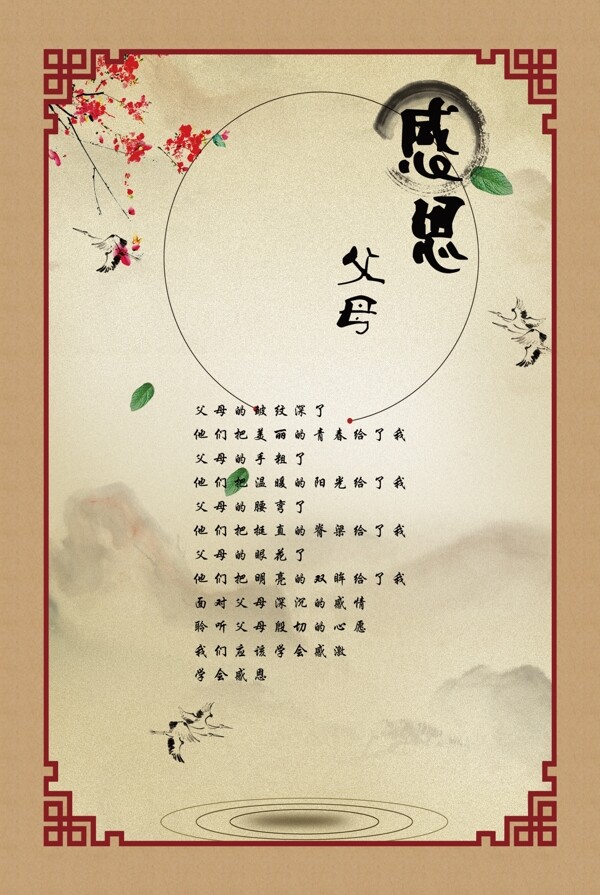 感恩
父母
父母的皱纹深了
他们把美丽的青春给了我
父母的手粗了
他们把温暖的阳光给了我
父母的腰弯了
他们把挺直的脊梁给了我
父母的眼花了
他们把明亮的双眸给了我
面对父母深沉的感情
聆听父母殷切的心愿
我们应该学会感激
学会感恩